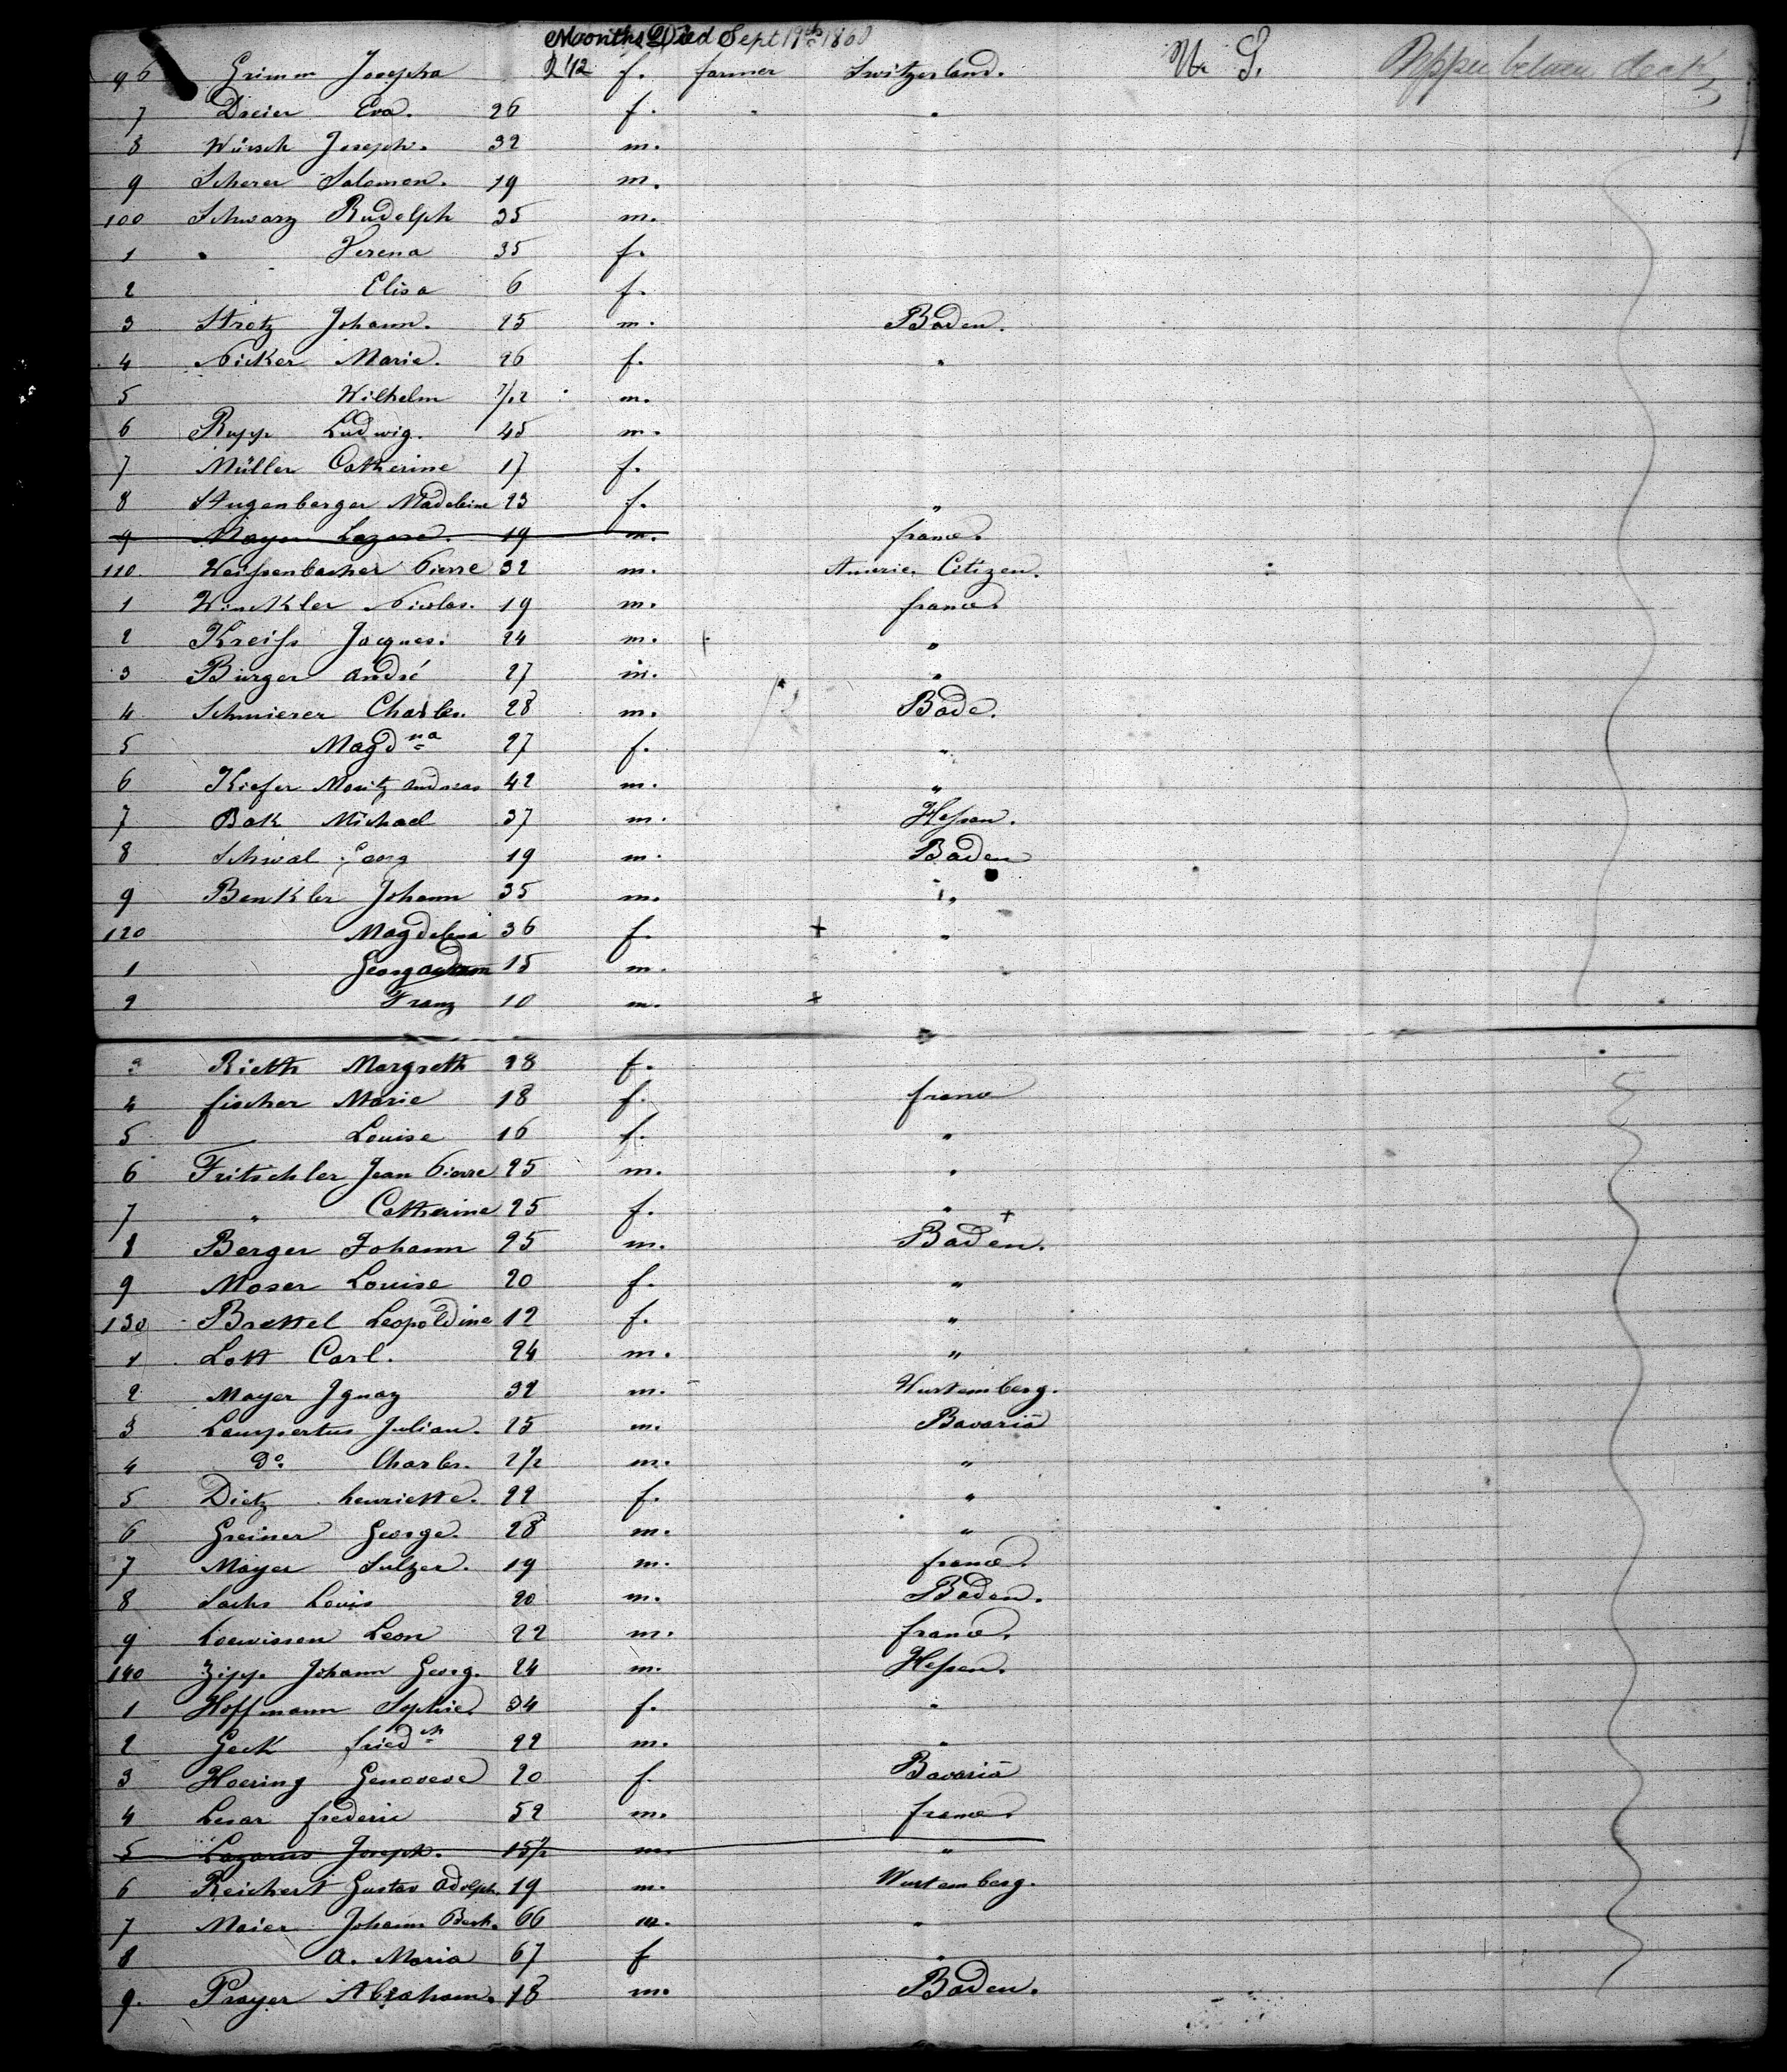 Months Died Sept 19th 1860
96 Grimm Josepha 2/12 f. farmer Switzerland. U. S. Upper between deck
7 Dreier Eva. 26 f. "
8 Würsch Joseph. 32 m.
9 Scherer Salomon. 19 m.
100 Schwarz Rudolph 35 m.
1 " Verena 35 f.
2 Elisa 6 f.
3 Strotz Johann. 25 m. Baden.
4 Nicker Marie. 26 f. "
5 Wilhelm 7/12 m.
6 Rupp Ludwig. 45 m.
7 Müller Catherine 17 f.
8 Stugenberger Madeleine 23 f. "
9 Mayer Lazare. 19 m. france.
110 Weissenbacher Pierre 32 m. Americ. Citizen.
1 Winckler Nicolas. 19 m. france.
2 Kreiss Jacques. 24 m. "
3 Burger André 27 m. "
4 Schmierer Charles. 28 m. Bade.
5 Magdna 27 f. "
6 Kiefer Moritz Andreas 42 m. "
7 Bak Michael 37 m. Hessen.
8 Schwal Georg 19 m. Baden
9 Benkler Johann 35 m. "
120 Magdelena 36 f. + "
1 Georg Adam 15 m.
2 Franz 10 m. +
3 Rieth Margreth 28 f.
4 fischer Marie 18 f. france
5 Louise 16 f. "
6 Fritschler Jean Pierre 25 m. "
7 " Catherine 25 f. "
8 Berger Johann 25 m. Baden. +
9 Moser Louise 20 f. "
130 Brettel Leopoldine 12 f. "
1 Lott Carl. 24 m. "
2 Mayer Ignaz 32 m. Wurtemberg.
3 Lampertus Julian. 25 m. Bavaria
4 Do. Charles. 2 1/2 m. "
5 Dietz henriette. 22 f. "
6 Greiner George. 28 m. "
7 Mayer Sulzer. 19 m. france.
8 Sachs Louis 20 m. Baden.
9 Loewissen Leon 22 m. france.
140 Zipp. Johann Georg. 24 m. Hessen.
1 Hoffmann Sophie. 34 f. "
2 Geck friedch 22 m. "
3 Hoering Genoveve 20 f. Bavaria
4 Lesar frederic 52 m. france
5 Lazarus Joseph. 15 1/2 m. "
6 Reichert Gustav Adolph. 19 m. Wurtemberg.
7 Maier Johann Bark. 66 m. "
8 A. Maria 67 f "
9. Prayer Abraham. 18 m. Baden.